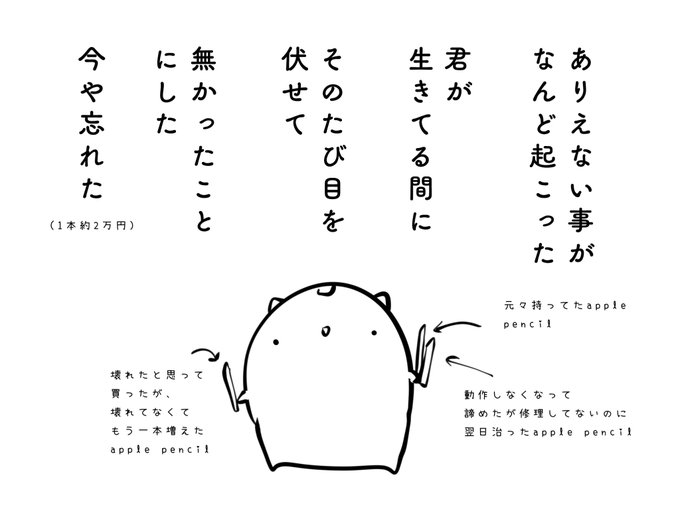 ありえない事が
なんど起こった
君が
生きてる間に
そのたび目を
伏せて
無かったこと
にした
今や忘れた
(1本約2万円)
元々持ってたapple
pencil
動作しなくなって
諦めたが修理してないのに
翌日治ったapple pencil
壊れたと思って
買ったが、
壊れてなくて
もう一本増えた
apple pencil